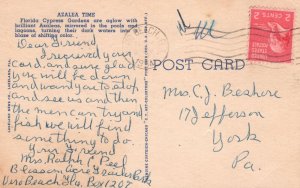 AZALEA TIME
Florida Cypress Gardens are aglow with
brilliant Azaleas, mirrored in the pools and
lagoons, turning their dark waters into a
blaze of shifting color.
Dear Friend
I received your
card, and sure glad
you will be down
and want you to stop
and see us and then
the men can try and
fish we will find
something to do.
Your Friend
Mrs. Ralph C. Peel
Blossom Lane Trailer Park
Vero Beach Fla. Box 1207
POST CARD
2 CENTS 2
Mrs. C. J. Beshore
17 Jefferson
York
Pa.